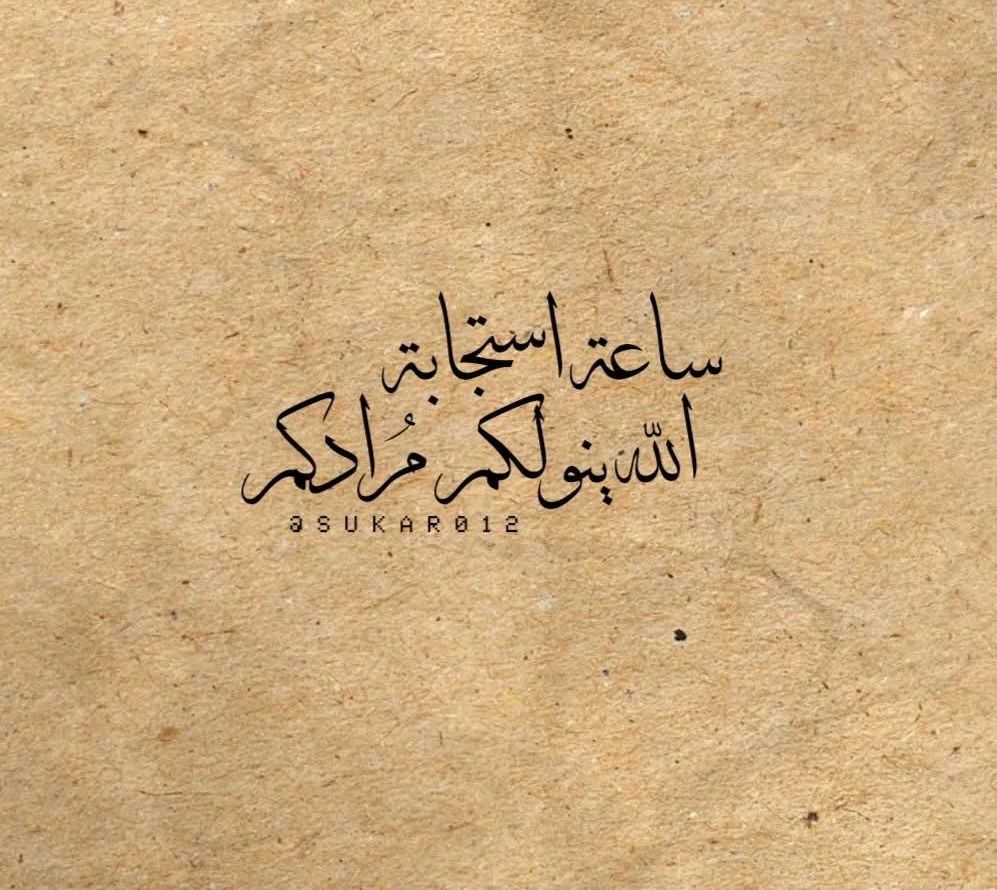 ساعة استجابة
الله ينولكم مُرادكم
@SUKAR012